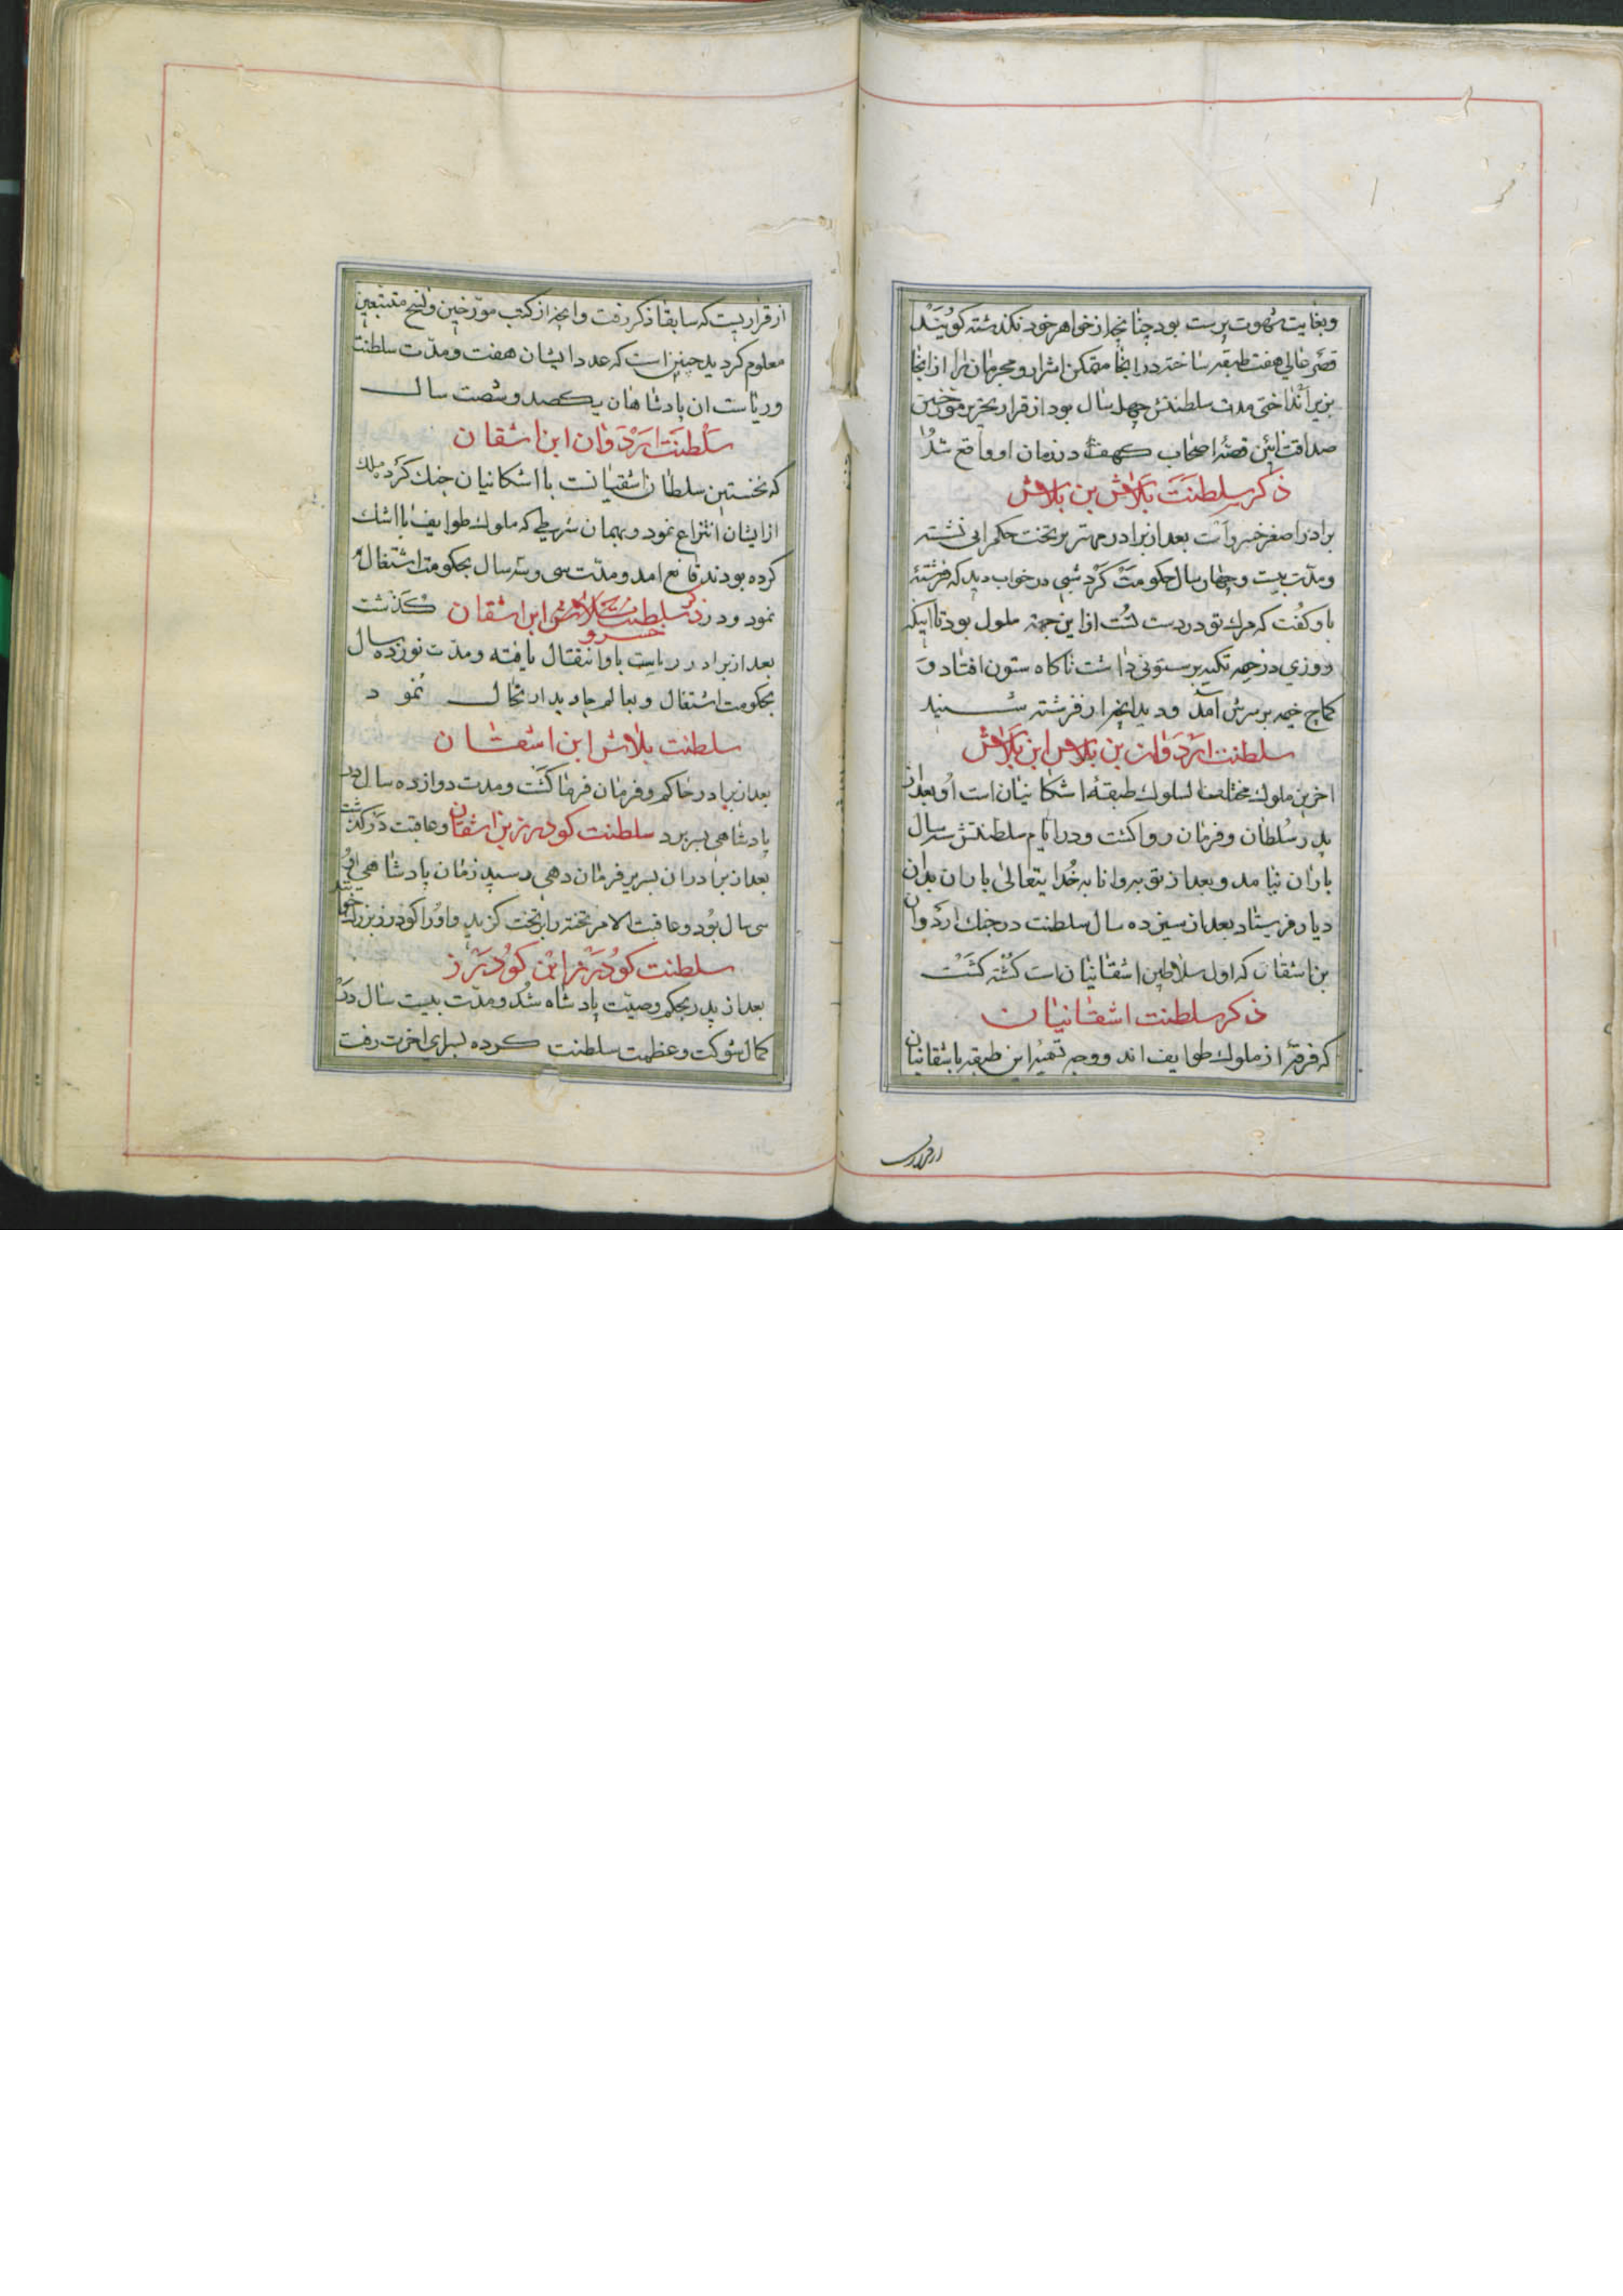 وبغایت شهوت پرست بود چنانچه از خواهر خود نکذشته کویند
قصر عالی هفت طبقه ساخته در انجا متمکن اشرار و مجرمان را از انجا
بزیر انداختی مدت سلطنتش چهل سال بود از قرار تحریر مورخین
صداقت ائین قصهٔ اصحاب کهف در زمان او واقع شد
ذکر سلطنت بلاش بن بلاش
برادر اصغر خسرو است بعد از برادر مهتر بر تخت حکمرانی نشسته
ومدت بیست و چهار سال حکومت کرد شبی در خواب دید که فرشتهٔ
باو کفت که مرك تو در دست تست از این جهة ملول بود تا اینکه
روزی در خیمه تکیه بر ستونی داشت ناکاه ستون افتاد و
کماج خیمه بر سرش آمد و دید انچه از فرشته شنید
سلطنت اردوان بن بلاش ابن بلاش
اخرین ملوك مختلف السلوك طبقهٔ اشکانیان است او بعد از
پدر سلطان و فرمان روا کشت و در ایام سلطنتش سه سال
باران نیامد و بعد از توبه و انابه خدایتعالی باران بدان
دیار فرستاد بعد از سیزده سال سلطنت در جنك اردوان
بن اشقان که اول سلاطین اشقانیان است کشته کشت
ذکر سلطنت اشقانیان
که فرقهٔ از ملوك طوایف اند و وجه تسمیهٔ این طبقه باشقانیان
از قرار
از قراریست که سابقا ذکر رفت و انچه از کتب مورخین و نسخ متتبعین
معلوم کردید چنین است که عدد ایشان هفت و مدت سلطنت
و ریاست ان پادشاهان یکصد و شصت سال
سلطنت اردوان ابن اشقان
که نخستین سلطان اشقیانست با اشکانیان جنك کرده ملك
از ایشان انتزاع نمود و بهمان شرطی که ملوك طوایف با اشك
کرده بودند قانع امد و مدت سی و سه سال بحکومت اشتغال
نمود و در کذشت ذکر سلطنت خسرو ابن اشقان
بعد از برادر ریاست باو انتقال یافته و مدت نوزده سال
بحکومت اشتغال و بعالم جاوید ارتحال نمود
سلطنت بلاش ابن اشقان
بعد از برادر حاکم و فرمان فرما کشت و مدت دوازده سال در
پادشاهی بسر برد و عاقبت درکذشت سلطنت کودرز بن اشقان
بعد از برادران بسریر فرمان دهی رسید زمان پادشاهی او
سی سال بود و عاقبت الامر تخته را بر تخت کزید و او را کودرز بزرك خوانند
سلطنت کودرز ابن کودرز
بعد از پدر بحکم وصیت پادشاه شد و مدت بیست سال در
کمال شوکت و عظمت سلطنت کرده بسرای اخرت رفت